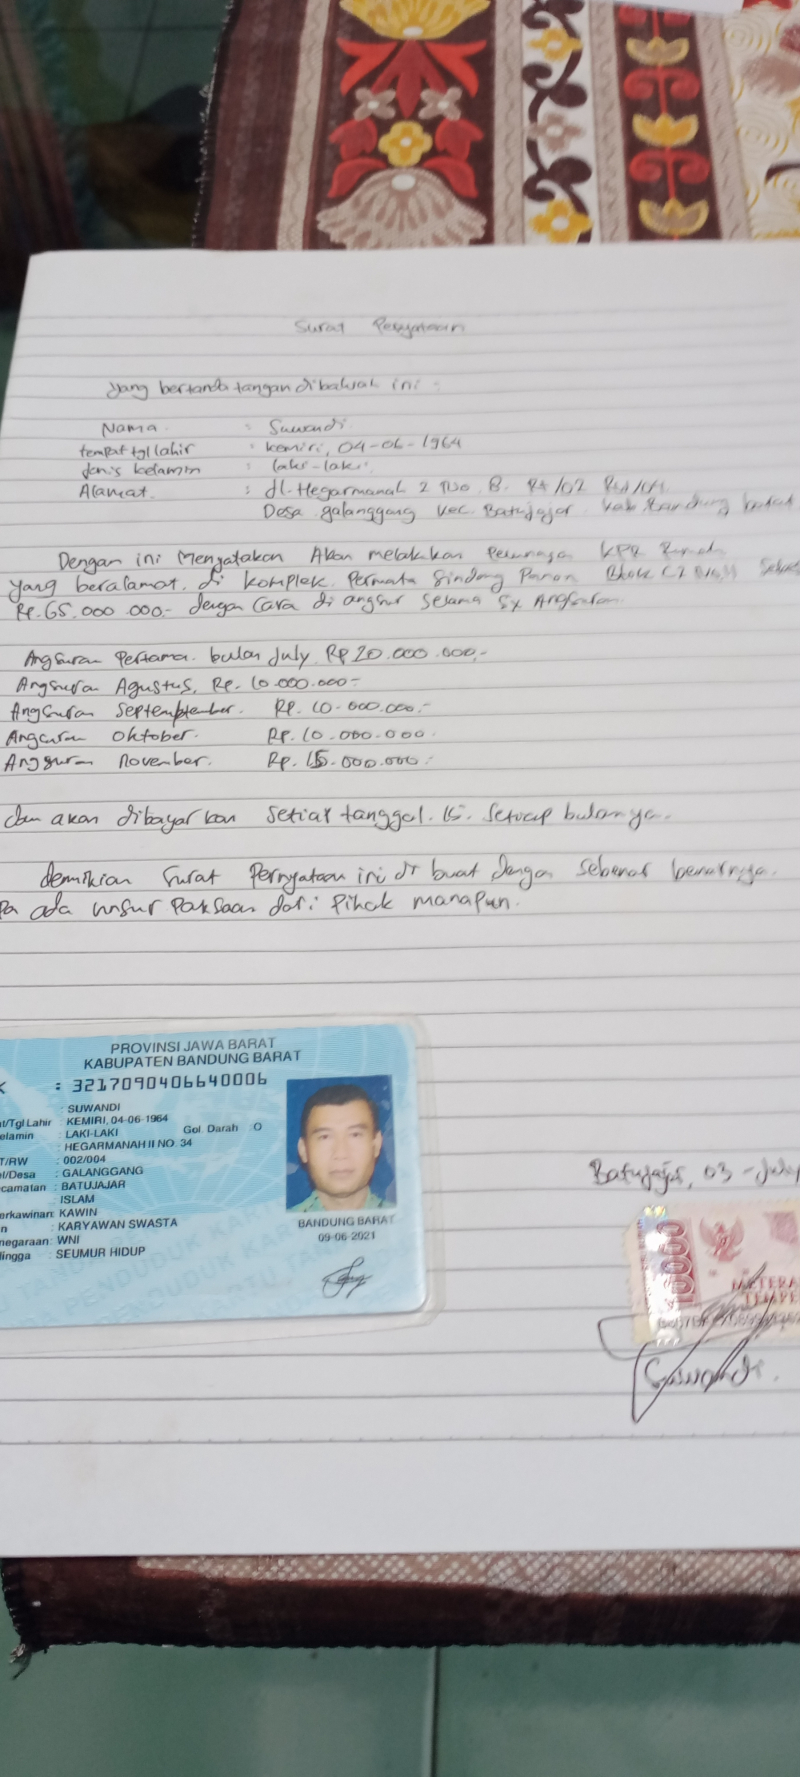 Surat Pernyataan
Yang bertanda tangan dibawah ini :
Nama : Suwandi
tempat tgl lahir : Kemiri, 04-06-1964
Jenis kelamin : laki-laki
Alamat : Jl. Hegarmanah 2 No
Desa galanggang Kec. Batujajar Kab Bandung barat
Dengan ini Menyatakan Akan melakukan KPR Rumah
yang beralamat di Komplek Permata Sindang Panon Block C2
Rp. 65.000.000.- dengan Cara di angsur Selama 5x Angsuran.
Angsuran Pertama. bulan July. Rp 20.000.000,-
Angsuran Agustus, Rp. 10.000.000-
Angsuran September. Rp. 10.000.000.-
Angsuran Oktober. Rp. 10.000.000.
Angsuran November. Rp. 15.000.000.-
dan akan dibayarkan setiap tanggal. 15. Setiap bulanya.
demikian Surat Pernyataan ini di buat dengan sebenar benarnya.
pa ada unsur Paksaan dari Pihak manapun.
PROVINSI JAWA BARAT
KABUPATEN BANDUNG BARAT
K : 3217090406640006
: SUWANDI
at/Tgl Lahir : KEMIRI, 04-06-1964
elamin : LAKI-LAKI Gol. Darah O
: HEGARMANAH II NO. 34
T/RW : 002/004
l/Desa : GALANGGANG
camatan : BATUJAJAR
ISLAM
erkawinan: KAWIN
n : KARYAWAN SWASTA
negaraan: WNI
ingga : SEUMUR HIDUP
BANDUNG BARAT
09-06-2021
Batujajar, 03 - July
10000
METERA
TEMPE
Suwandi.